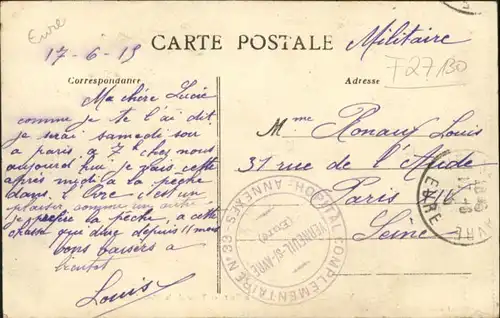 Eure
17-6-15
CARTE POSTALE
Militaire
F27130
Correspondance
Adresse
Ma chère Lucie
comme je te l'ai dit
je serai samedi soir
a paris a 7h chez nous
aujourd'hui je vais cette
après midi a la pêche
dans l'Avre c'est
plaisir comme un autre
je prefère la pêche, a cette
chasse qui dure depuis 11 mois
bons baisers a
bientot
Louis
Mme Ronaux Louis
31 rue de l'Aude
Paris 14e
Seine
HOPITAL COMPLEMENTAIRE N°33 - ANNEXES
VERNEUIL-S-AVRE
(Eure)
EURE